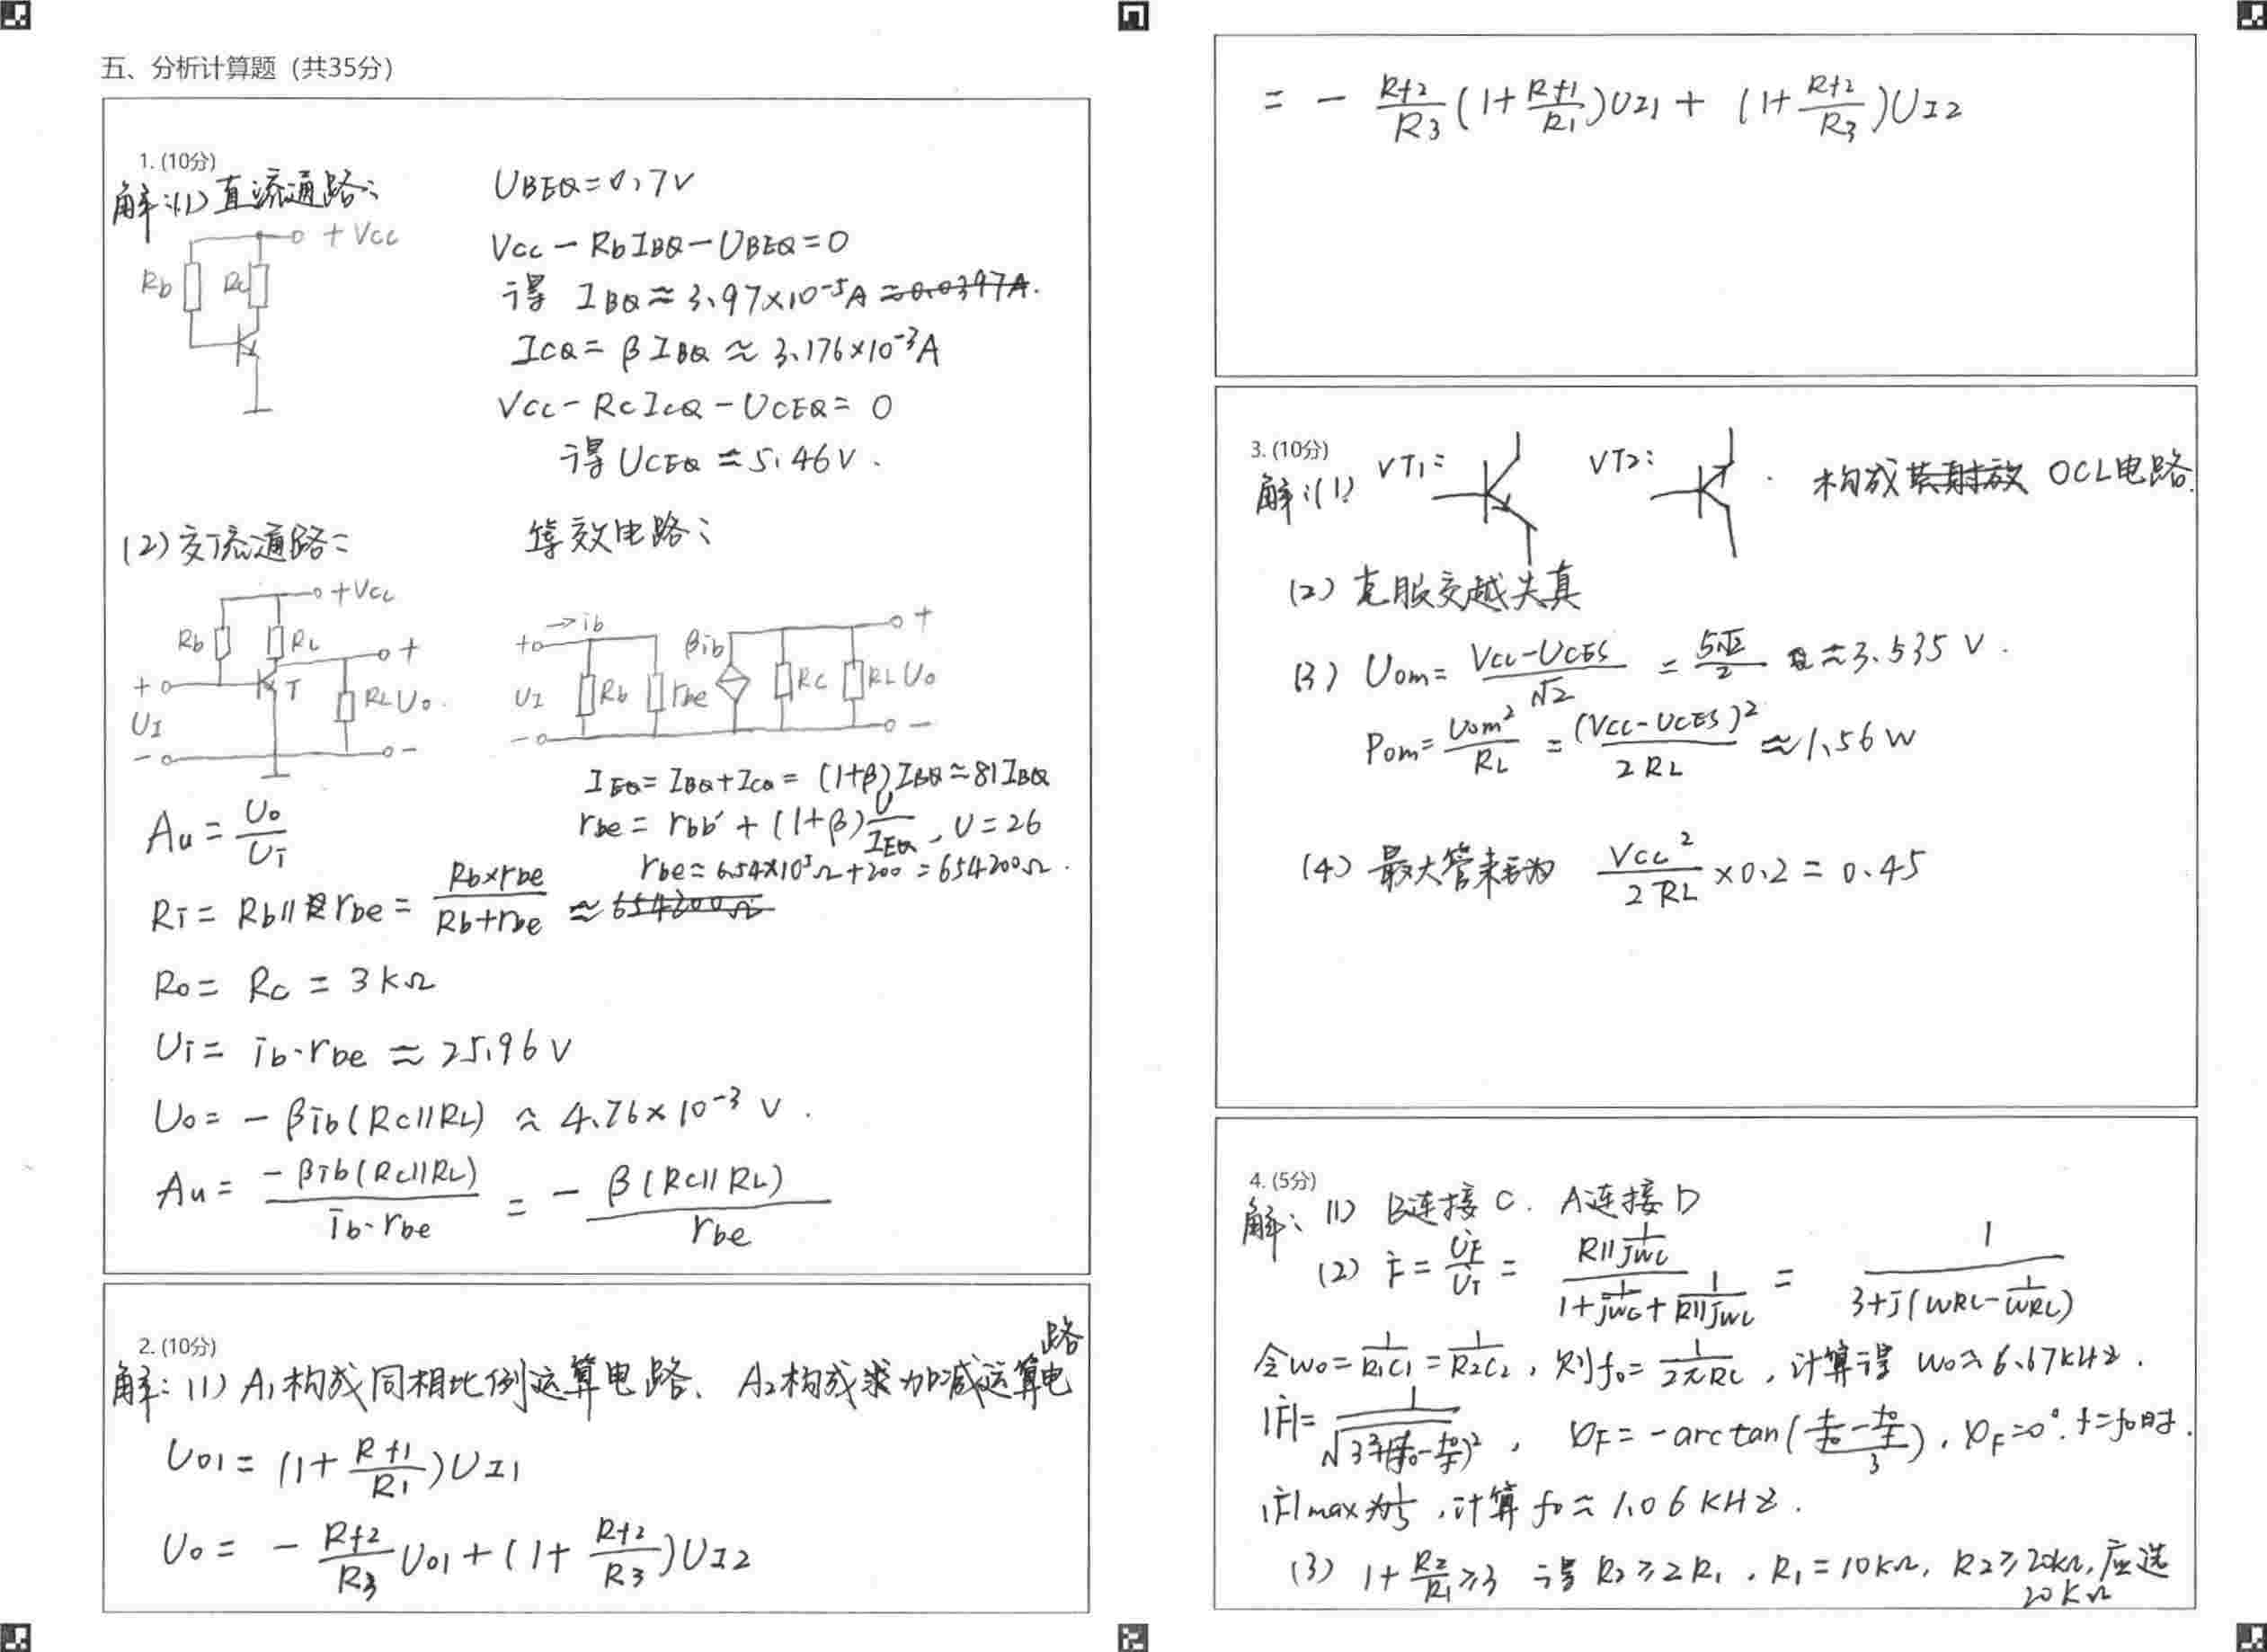 五、分析计算题（共35分）
1. (10分)
解:(1) 直流通路:
+Vcc
Rb
Rc
UBEQ=0.7V
Vcc-RbIBQ-UBEQ=0
得 IBQ≈3.97×10⁻⁵A
ICQ=βIBQ≈3.176×10⁻³A
Vcc-RcICQ-UCEQ=0
得UCEQ≈5.46V.
(2)交流通路:
+Vcc
Rb
RL
+
+
T
RL Uo
UI
-
-
等效电路:
→ib
+
βib
+
UI
Rb
rbe
Rc
RL Uo
-
-
IEQ=IBQ+ICQ=(1+β)IBQ≈81IBQ
rbe=rbb'+(1+β)U/IEQ, U=26
rbe≈6.54×10⁵Ω+200=654200Ω.
Au=Uo/Ui
Ri=Rb//rbe=Rb×rbe/(Rb+rbe)≈654200Ω
Ro=Rc=3kΩ
Ui=ib·rbe≈25.96V
Uo=-βib(Rc//RL)≈4.76×10⁻³V.
Au=-βib(Rc//RL)/(ib·rbe)=-β(Rc//RL)/rbe
2. (10分)
解:(1) A₁构成同相比例运算电路、A₂构成求加减运算电路
Uo1=(1+Rf1/R1)UI1
Uo=-Rf2/R3 Uo1+(1+Rf2/R3)UI2
=-Rf2/R3(1+Rf1/R1)UI1+(1+Rf2/R3)UI2
3. (10分)
解:(1) VT1: VT2: . 构成共射放 OCL电路.
(2) 克服交越失真
(3) Uom=(Vcc-UCES)/√2=5√2/2≈3.535V.
Pom=Uom²/RL=(Vcc-UCES)²/2RL≈1.56W
(4) 最大管耗为 Vcc²/2RL×0.2=0.45
4. (5分)
解: (1) B连接C. A连接D
(2) Ḟ=U̇F/U̇i=(R//1/jwc)/(1+1/jwc+1/R//jwc)=1/(3+j(wRC-1/wRC))
令w₀=1/R1C1=1/R2C2, 则f₀=1/2πRC, 计算得 w₀≈6.67KHz.
|Ḟ|=1/√(3²+(f/f₀-f₀/f)²), φF=-arctan((f/f₀-f₀/f)/3), φF=0°. f=f₀时.
|Ḟ|max为1/3, 计算f₀≈1.06KHz.
(3) 1+R2/R1≥3 得R2≥2R1, R1=10kΩ, R2≥20kΩ, 应选
20KΩ